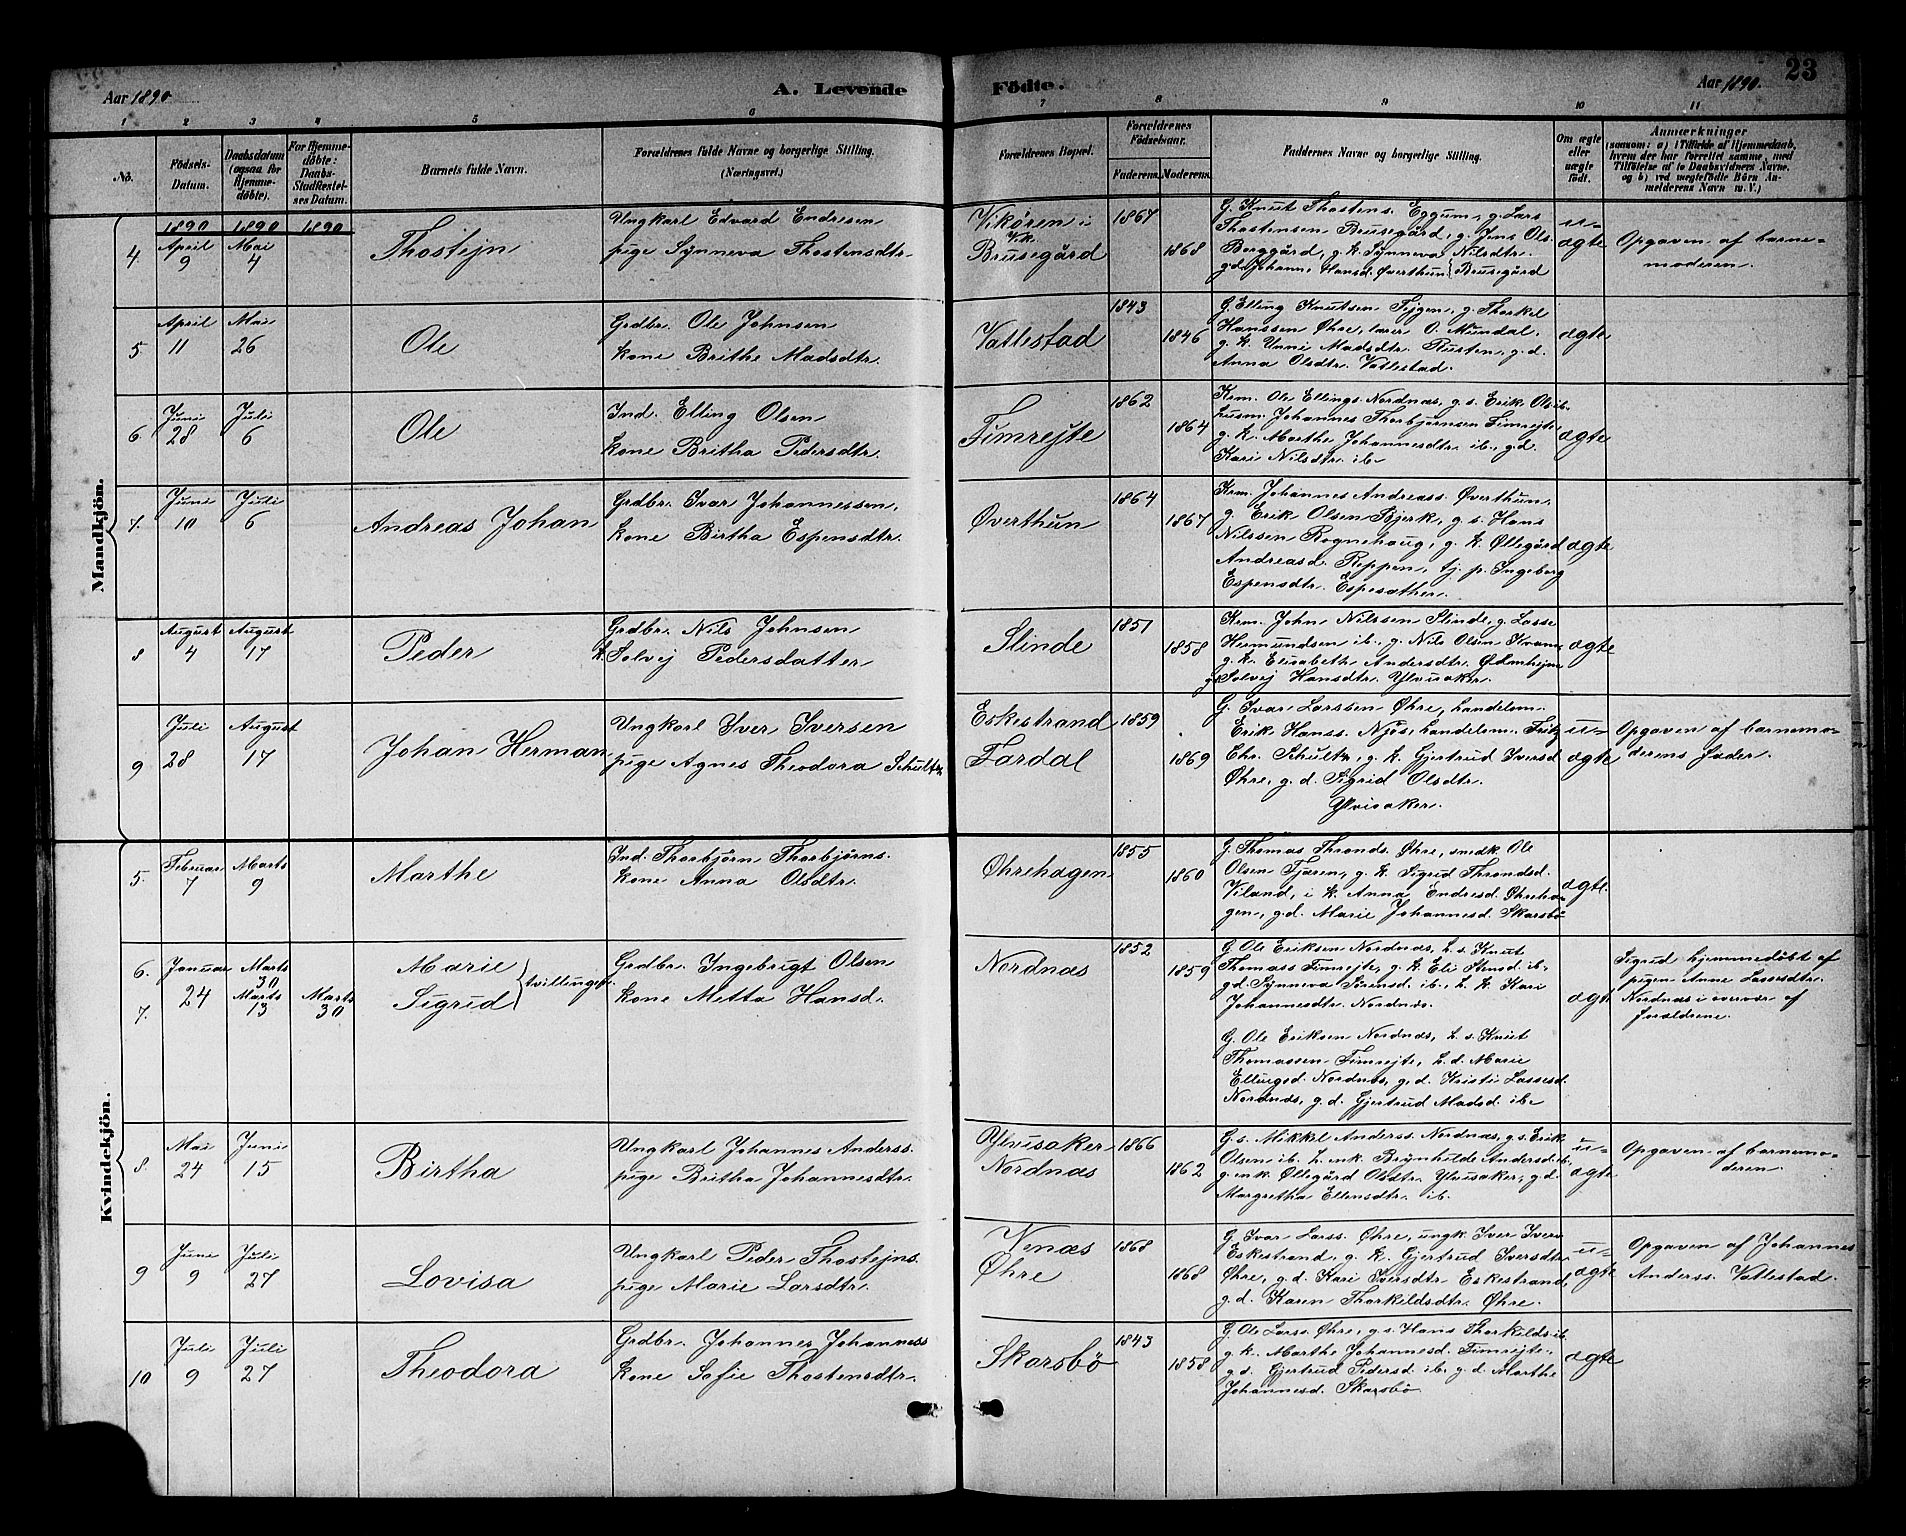 Aar 1890
A. Levende
Födte.
Aar 1890.
23
1 2 3 4 5 6 7 8 9 10 11
No.
Födsels-
Datum.
Daabsdatum
(ogsaa for
Hjemme-
döbte).
For Hjemme-
döbte:
Daabs-
Stadfæstel-
ses Datum.
Barnets fulde Navn.
Forældrenes fulde Navne og borgerlige Stilling.
(Næringsvei.)
Forældrenes Bopæl.
Forældrenes
Födselsaar.
Faderens. Moderens.
Faddernes Navne og borgerlige Stilling.
Om ægte
eller
uægte
födt.
Anmærkninger
(saasom: a) i Tilfælde af Hjemmedaab,
hvem der har forrettet samme, med
Tilföielse af to Daabsvidners Navne,
og b) ved uægtefödte Börn An-
melderens Navn m. V.)
Mandkjön.
1890 1890 1890
4. April 9 Mai 4
Thostejn
Ungkarl Edvard Endresen
pige Synneva Thostensdtr.
Vikøren i
Vik.
Brusegård
1867 1868
G. Knut Thostens. Eggum, g. Lars
Thostensen Brusegård, g. Jens Ols.
Borggård, g. k. Synneva Nilsdtr.
g.d. Johann. Hansd. Øverthun Brusegård
u-
ægte
Opgaven af barne-
moderen.
5. April 11 Mai 26
Ole
Grdbr. Ole Johnsen
kone Brithe Madsdtr.
Vatlestad
1843 1846
G. Elling Knutsen Fejgen, g. Thorkel
Hanssen Øhre, lærer O. Mundal.
g. k. Unni Madsdtr. Rusten, g. d.
Anna Olsdtr. Vatlestad.
ægte
6. Juni 28 Juli 6
Ole
Ind. Elling Olsen
kone Britha Pedersdtr.
Fimrejte
1862 1864
Krm. Ole Ellings. Nordnæs, g. s. Erik Ols. ib.
husm. Johannes Thorbjørnsen Fimrejte
g. k. Marthe Johannesdtr. ib., g.d.
Kari Nilsdtr. ib.
ægte
7. Juni 10 Juli 6
Andreas Johan
Grdbr. Ivar Johannessen,
kone Birtha Espensdtr.
Øverthun
1864 1867
Krm. Johannes Andreass. Øverthun,
g. Erik Olsen Bjerk, g. s. Hans
Nilssen Rognehaug, g. k. Øllegård
Andreasd. Reppen, tj. p. Ingeborg
Espensdtr. Espesæther.
ægte
8 August 4 August 17
Peder
Grdbr. Nils Johnsen
k. Solvej Pedersdatter
Slinde
1851 1858
Krm. John Nilssen Slinde, g. Lasse
Hermundsen ib., g. Nils Olsen Kvam
g. k. Elisabeth Andersdtr.
g. Solvej Hansdtr. Ylvisaker.
ægte
9 Juli 28 August 17
Johan Herman
Ungkarl Iver Iversen
pige Agnes Theodora Schultz
Eskestrand
Fardal
1859 1869
G. Ivar Larssen Øhre, handelsm.
Erik Hanss. Njøs, handelsm. Fritz
Chr. Schultz, g. k. Gjertrud Iversd
Øhre, g. d. Sigrid Olsdtr.
Ylvisaker.
u-
ægte
Opgaven af barnemo-
derens fader.
Kvindekjön.
5. Februar 7 Marts 9
Marthe
Ind. Thorbjørn Thorbjørns.
kone Anna Olsdtr.
Øhrehagen
1855 1860
G. Thomas Thronds. Øhre, smedk. Ole
Olsen Tjæren, g. k. Sigrid Throndsd.
Viland, i. k. Anna Endresd. Øhreha-
gen, g.d. Marie Johannesd. Skarsbø
ægte.
6. 7. Januar 24
Marts 30
Marts 13 Marts 30
Marie
Sigrid
tvillinger.
Grdbr. Ingebrigt Olsen
kone Metta Hansd.
Nordnæs
1852 1859
G. Ole Eriksen Nordnæs, h. s. Knut
Thomass Fimrejte, g. k. Eli Stensd. ib.
g.d. Synneva Sørensd. ib., h. k. Kari
Johannesdtr. Nordnæs.
G. Ole Eriksen Nordnæs, h. s. Knut
Thomassen Fimrejte, h. d. Marie
Ellingsd. Nordnæs, g. d. Kristi Lassesd.
Nordnæs, g. d. Gjertrud Madsd. ib.
ægt
Sigrid hjemmedøbt af
pigen Anne Lassesdtr.
Nordnæs i overvær af
forældrene.
8. Mai 24 Juni 15
Birtha
Ungkarl Johannes Anderss.
pige Britha Johannesdtr.
Ylvisaker
Nordnæs
1866 1862
G. s. Mikkel Anderss. Nordnæs, g. s. Erik
Olsen ib. h. enk. Brynhilde Andersd. ib.
g. enk. Øllegård Olsdtr. Ylvisaker, g. d.
Margretha Ellensdtr. ib.
u-
ægte
Opgaven af barnemo-
deren.
9 Juni 9 Juli 27
Lovisa
Ungkarl Peder Thostejns.
pige Marie Larsdtr.
Venæs
Øhre
1868 1868
G. Ivar Larss. Øhre, ungk. Iver Ivers
Eskestrand, g. k. Gjertrud Iversdtr
Øhre, g. d. Kari Iversdtr. Eskestrand,
g. d. Karen Thorkildsdtr. Øhre.
u-
ægte
Opgaven af Johannes
Anderss. Vatlestad.
10 Juli 9 Juli 27
Theodora
Grdbr. Johannes Johanness
kone Sofie Thostensdtr.
Skarsbø
1843 1858
G. Ole Larss. Øhre, g. s. Hans Thorkilds. ib.
g. k. Marthe Johannesd. Fimrejte.
g. d. Gjertrud Pedersd. ib. g. d. Marthe
Johannesd. Skarsbø
ægte